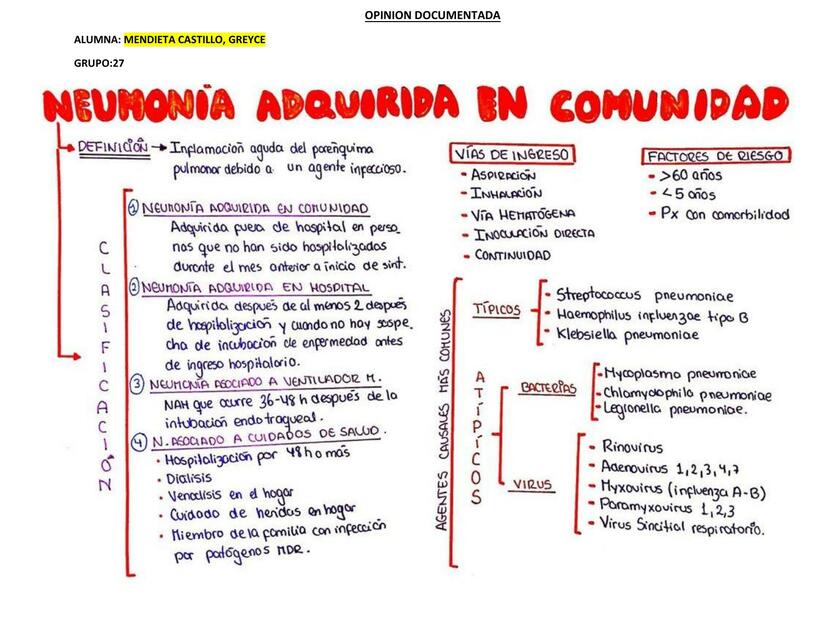 OPINION DOCUMENTADA
ALUMNA: MENDIETA CASTILLO, GREYCE
GRUPO:27
NEUMONÍA ADQUIRIDA EN COMUNIDAD
DEFINICIÓN → Inflamación aguda del parénquima
pulmonar debido a un agente infeccioso.
CLASIFICACIÓN
① NEUMONÍA ADQUIRIDA EN COMUNIDAD
Adquirida fuera de hospital en perso_
nas que no han sido hospitalizadas
durante el mes anterior a inicio de sint.
② NEUMONÍA ADQUIRIDA EN HOSPITAL
Adquirida después de al menos 2 después
de hospitalización y cuando no hay sospe_
cha de incubación de enfermedad antes
de ingreso hospitalario.
③ NEUMONÍA ASOCIADO A VENTILADOR M.
NAH que ocurre 36-48 h después de la
intubación endotraqueal.
④ N. ASOCIADO A CUIDADOS DE SALUD.
• Hospitalización por 48 h o más
• Dialisis
• Venalisis en el hogar
• Cuidado de heridas en hogar
• Miembro de la familia con infección
por patógenos MDR.
VÍAS DE INGRESO
• ASPIRACIÓN
• INHALACIÓN
• VÍA HEMATÓGENA
• INOCULACIÓN DIRECTA
• CONTINUIDAD
FACTORES DE RIESGO
• >60 años
• <5 años
• Px con comorbilidad
AGENTES CAUSALES MÁS COMUNES
TÍPICOS
• Streptococcus pneumoniae
• Haemophilus influenzae tipo B
• Klebsiella pneumoniae
ATÍPICOS
BACTERIAS
• Mycoplasma pneumoniae
• Chlamydophila pneumoniae
• Legionella pneumoniae.
VIRUS
• Rinovirus
• Adenovirus 1,2,3,4,7
• Myxovirus (influenza A-B)
• Paramyxovirus 1,2,3
• Virus Sincitial respiratorio.